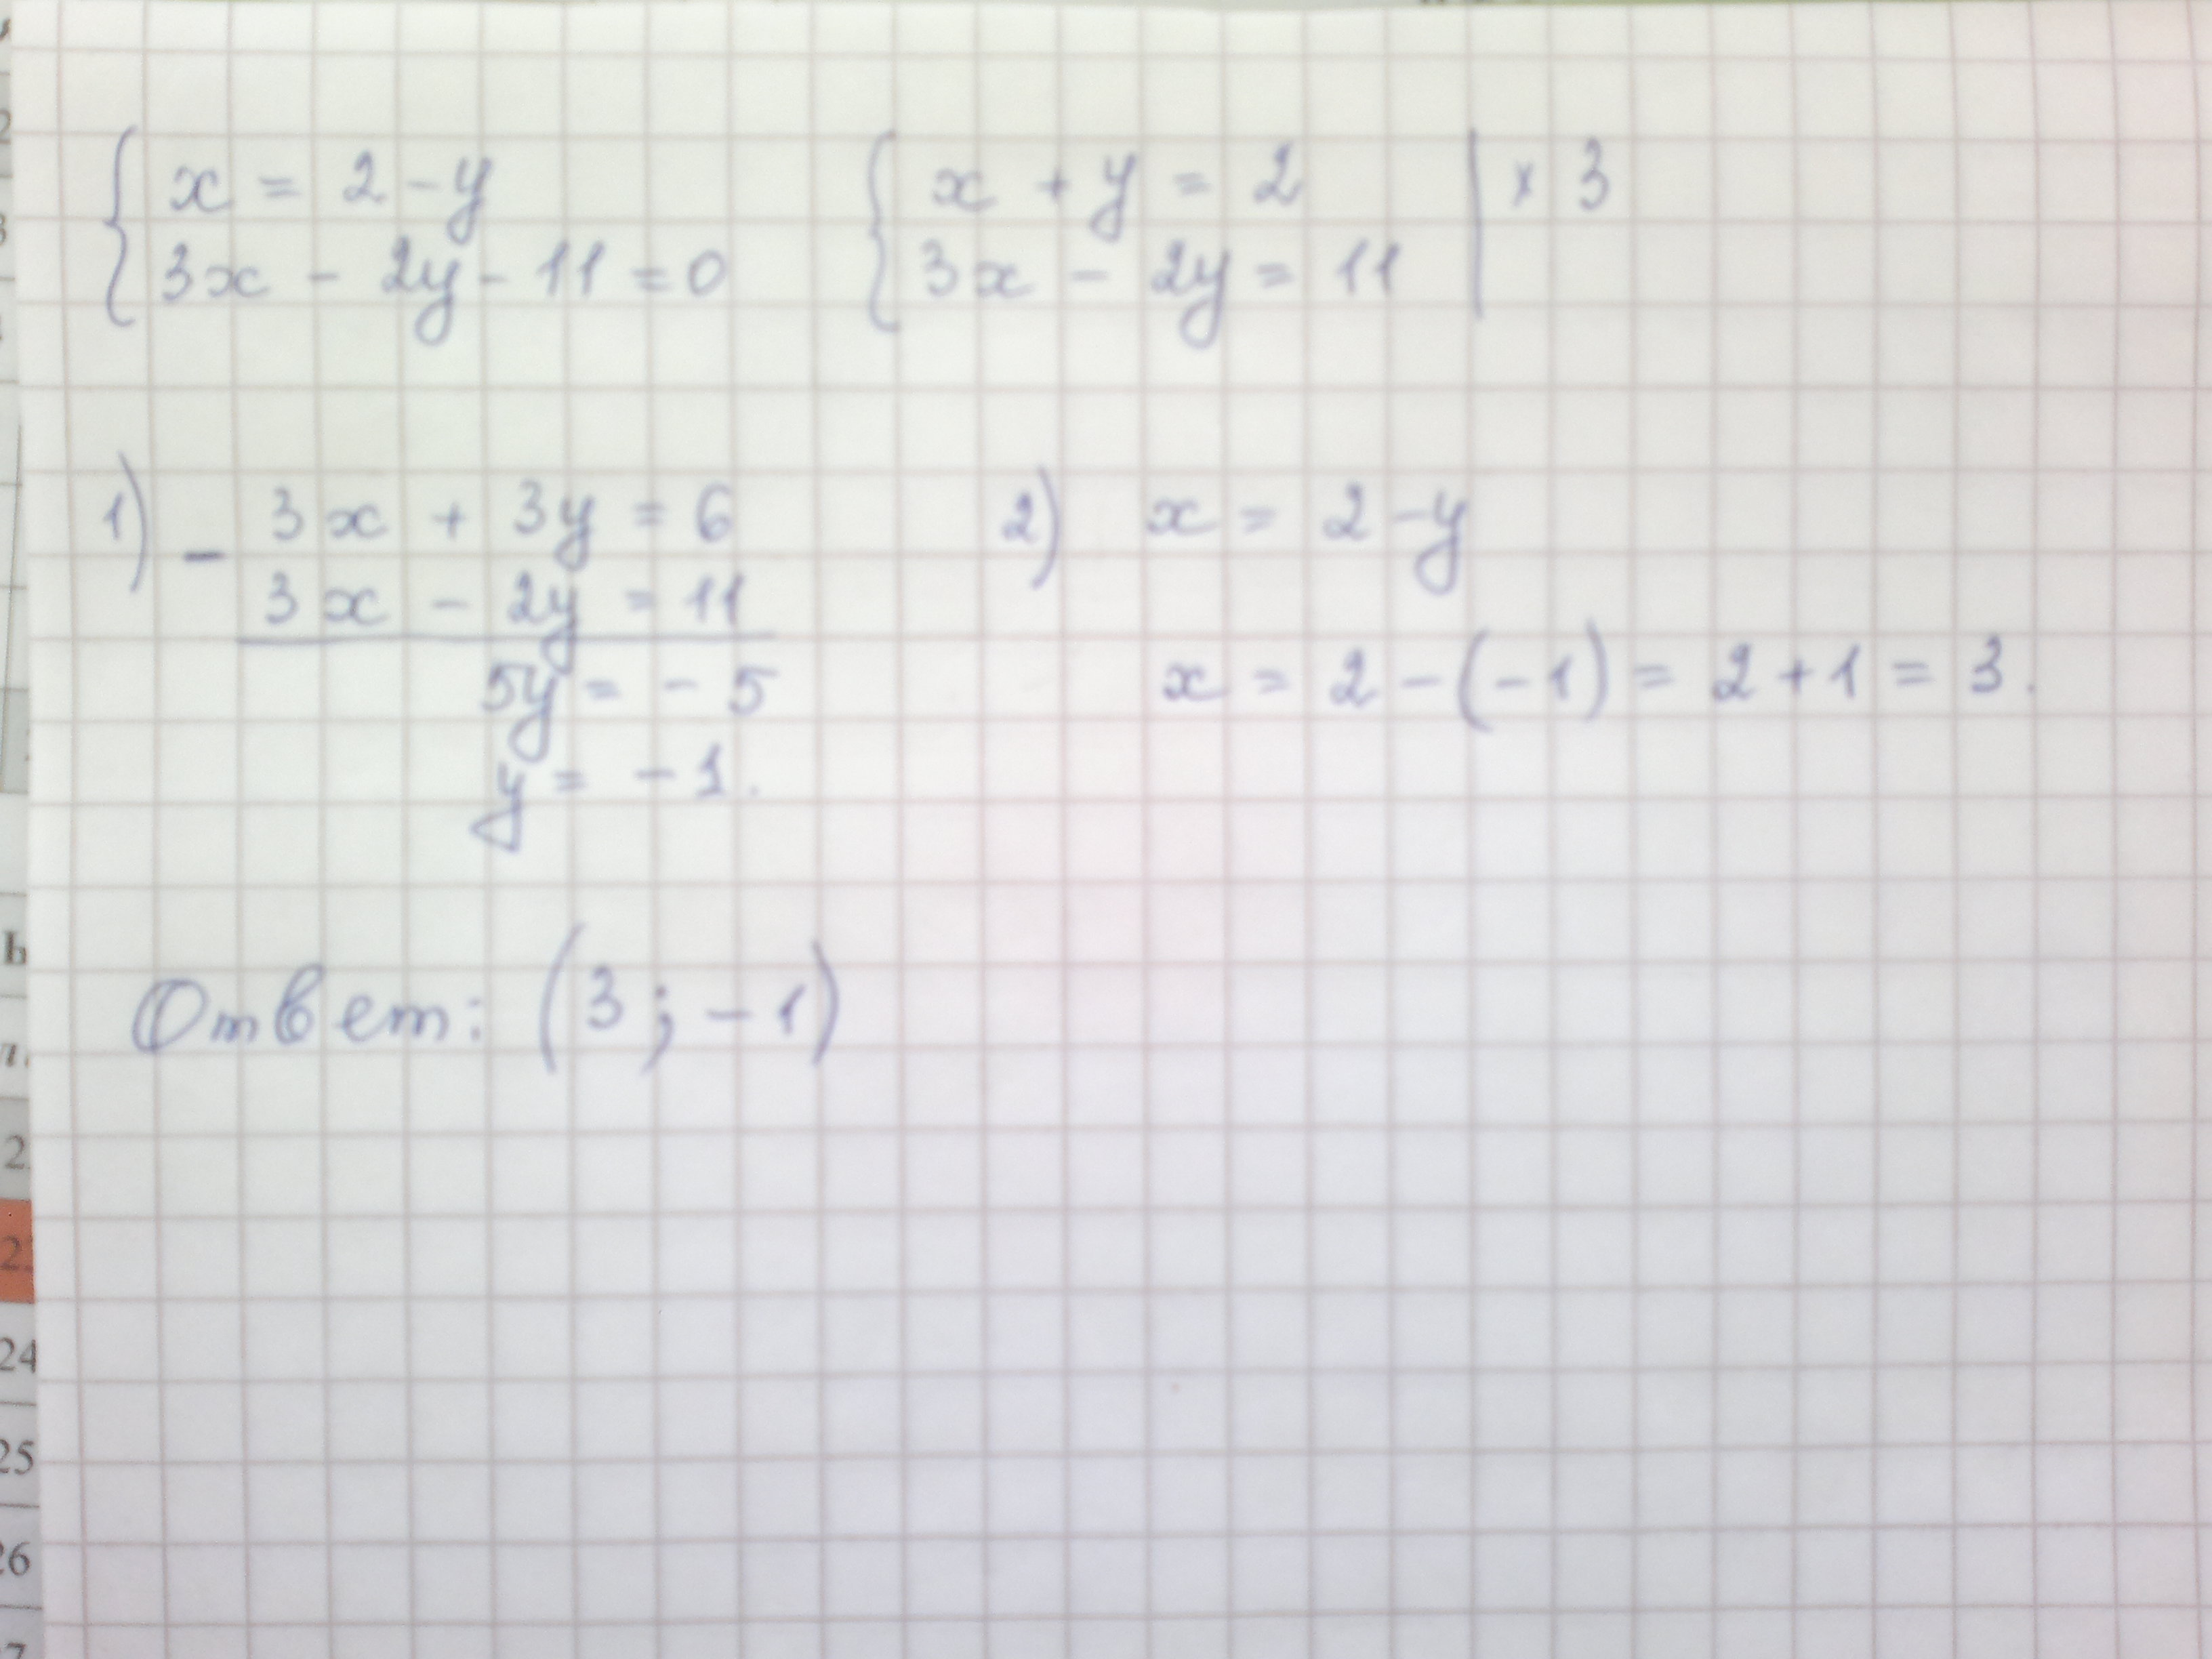 x = 2 - y
3x - 2y - 11 = 0
x + y = 2 | × 3
3x - 2y = 11
1) - 3x + 3y = 6
3x - 2y = 11
5y = - 5
y = - 1.
2) x = 2 - y
x = 2 - (-1) = 2 + 1 = 3.
Ответ: (3; -1)
24
25
26